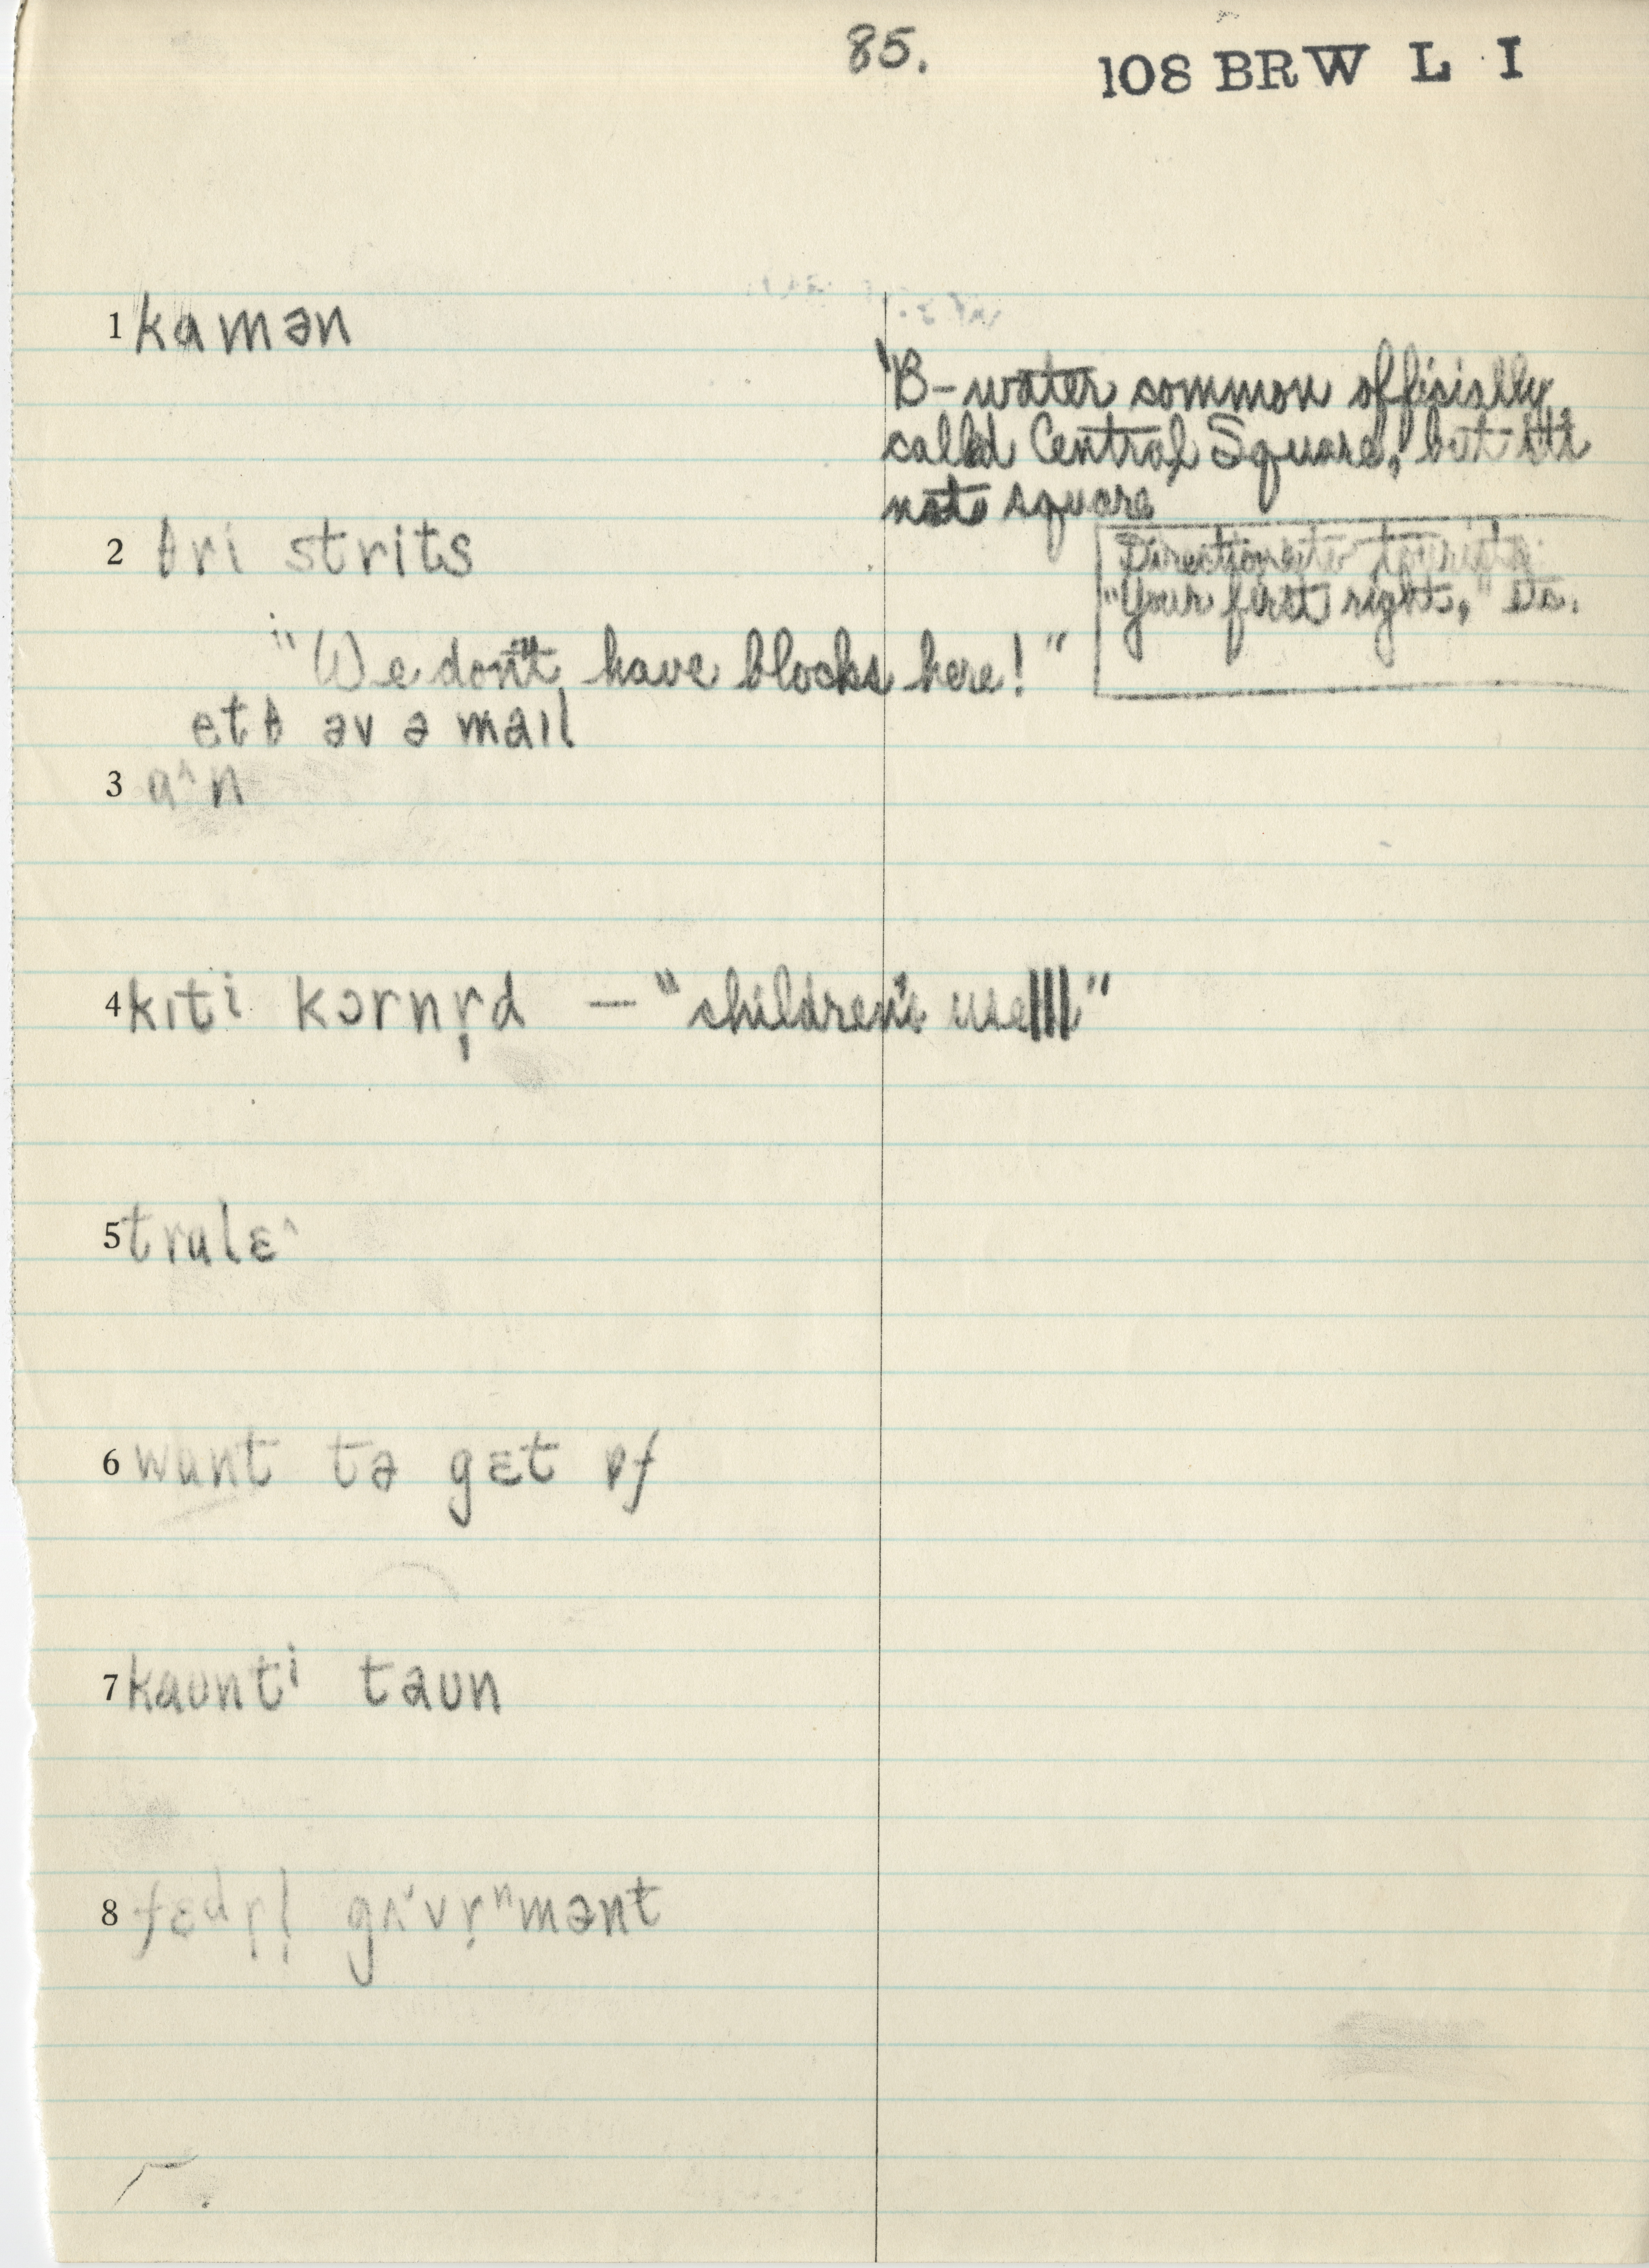 85.
108 BRW L I
1 kamən
B-water common officially
called Central Square, but it's
not square
2 θri strits
Directions to tourists:
"Your first right," etc.
"We don't have blocks here!"
etθ əv ə maɪl
3 ɑ^n
4 kɪti kɔrnr̩d — "children's use|||"
5 trɑlɛ^
6 wɑnt tə gɛt ɒf
7 kaʊntⁱ taʊn
8 fɛdr̩l̩ gʌ'vr̩ⁿmənt